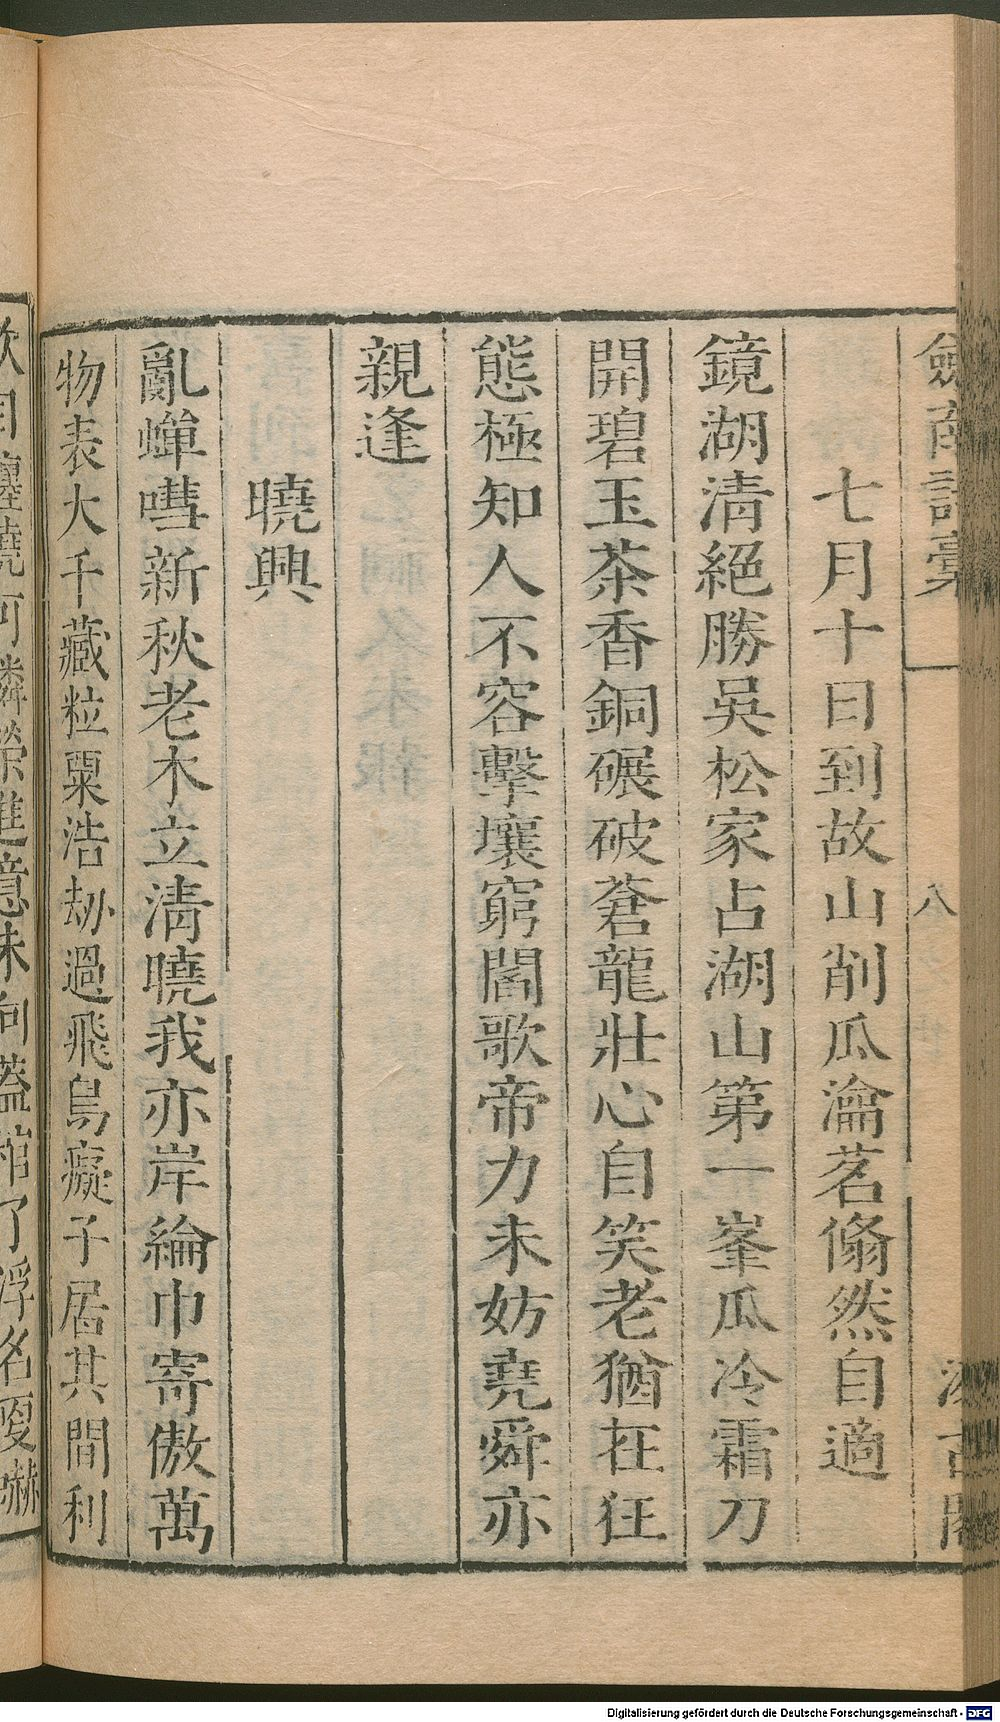 劔南詩稾
八
七月十日到故山削瓜瀹茗翛然自適
鏡湖清絕勝吳松家占湖山第一峯瓜冷霜刀
開碧玉茶香銅碾破蒼龍壯心自笑老猶在狂
態極知人不容擊壤窮閻歌帝力未妨堯舜亦
親逢
曉興
亂蟬嘒新秋老木立清曉我亦岸綸巾寄傲萬
物表大千藏粒粟浩劫過飛鳥癡子居其間利
Digitalisierung gefördert durch die Deutsche Forschungsgemeinschaft - DFG